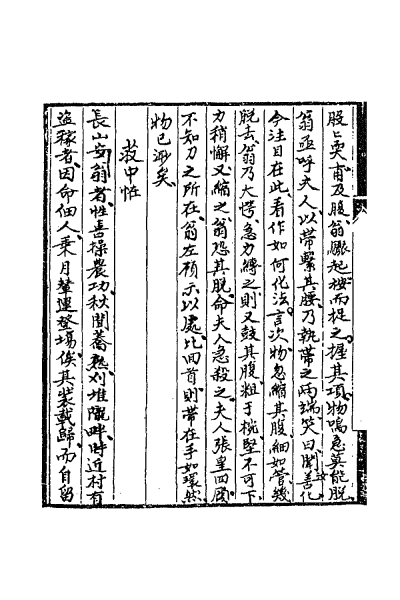 股〻耎甫及腹翁驟起按而捉之握其項物鳴急莫能脫
翁亟呼夫人以帶縶其腰乃執帶之兩端笑曰聞汝善化
今注目在此看作如何化法言次物忽縮其腹細如管幾
脫去翁乃大愕急力縛之則又鼓其腹粗于椀堅不可下
力稍懈又縮之翁恐其脫命夫人急殺之夫人張皇四顧
不知刀之所在翁左顧示以處比回首則帶在手如環然
物已渺矣
荍中怪
長山安翁者性喜操農功秋間蕎熟刈堆隴畔時近村有
盜稼者因命佃人乘月輦運登場俟其裝載歸而自留